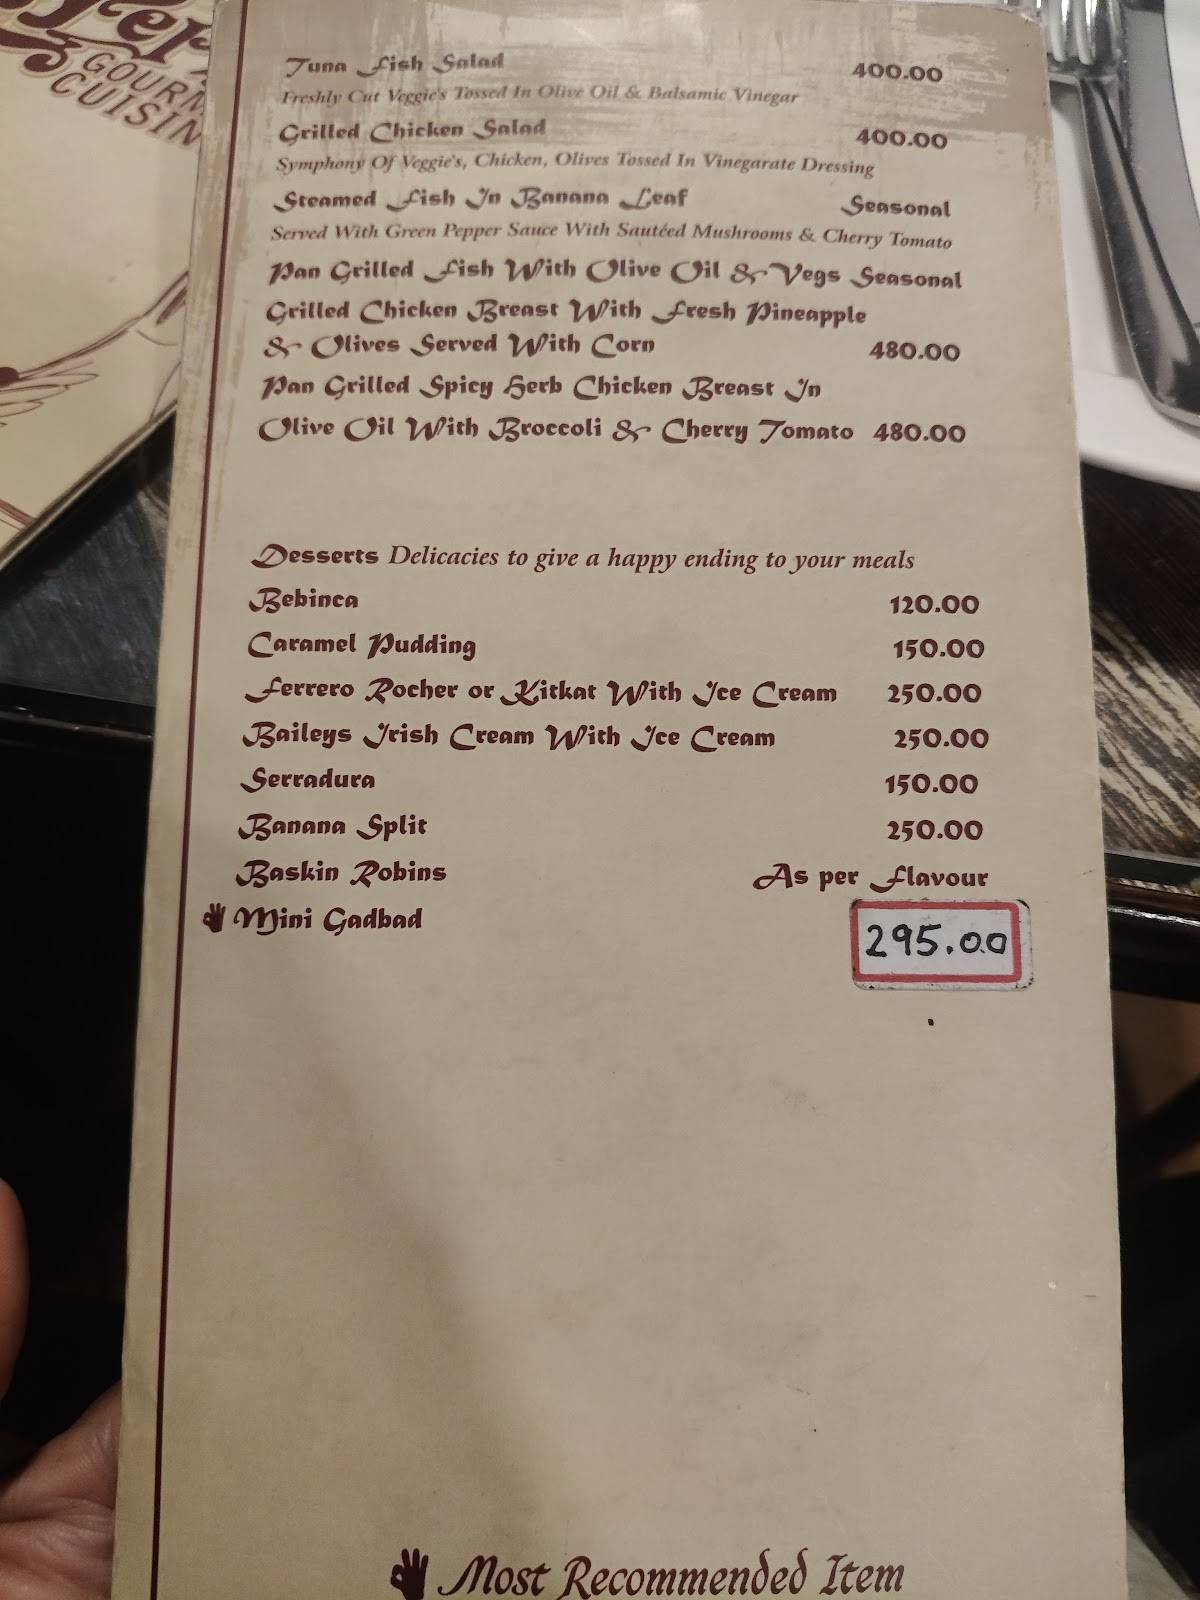 GOURM
CUISIN
Tuna Fish Salad 400.00
Freshly Cut Veggie's Tossed In Olive Oil & Balsamic Vinegar
Grilled Chicken Salad 400.00
Symphony Of Veggie's, Chicken, Olives Tossed In Vinegarate Dressing
Steamed Fish In Banana Leaf Seasonal
Served With Green Pepper Sauce With Sautéed Mushrooms & Cherry Tomato
Pan Grilled Fish With Olive Oil & Vegs Seasonal
Grilled Chicken Breast With Fresh Pineapple
& Olives Served With Corn 480.00
Pan Grilled Spicy Herb Chicken Breast In
Olive Oil With Broccoli & Cherry Tomato 480.00
Desserts Delicacies to give a happy ending to your meals
Bebinca 120.00
Caramel Pudding 150.00
Ferrero Rocher or Kitkat With Ice Cream 250.00
Baileys Irish Cream With Ice Cream 250.00
Serradura 150.00
Banana Split 250.00
Baskin Robins As per Flavour
Mini Gadbad 295.00
Most Recommended Item